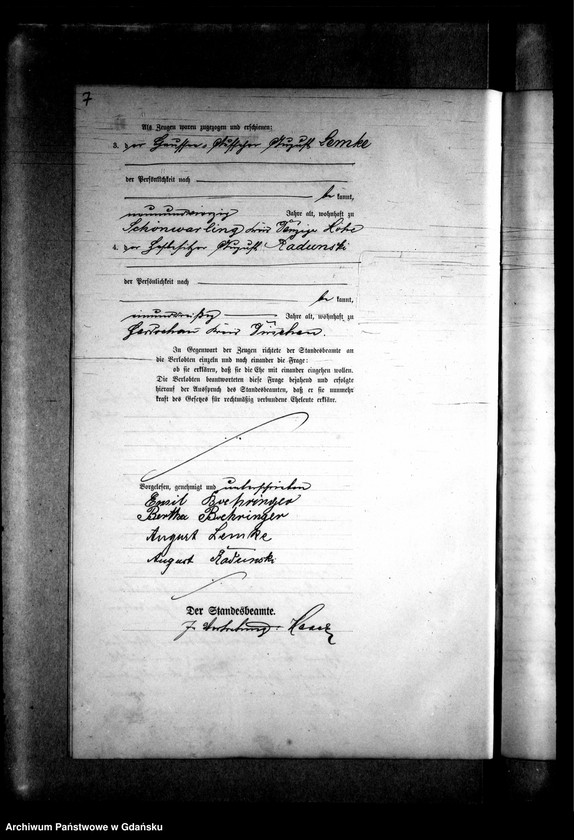 7
Als Zeugen waren zugezogen und erschienen:
3. der August Lemke
der Persönlichkeit nach
be kannt,
neunundvierzig Jahre alt, wohnhaft zu
Schönwarling Kreis Danziger Höhe
4. der Hofbesitzer August Radunski
der Persönlichkeit nach
be kannt,
einunddreißig Jahre alt, wohnhaft zu
Kreis Dirschau.
In Gegenwart der Zeugen richtete der Standesbeamte an
die Verlobten einzeln und nach einander die Frage:
ob sie erklären, daß sie die Ehe mit einander eingehen wollen.
Die Verlobten beantworteten diese Frage bejahend und erfolgte
hierauf der Ausspruch des Standesbeamten, daß er sie nunmehr
kraft des Gesetzes für rechtmäßig verbundene Eheleute erkläre.
Vorgelesen, genehmigt und unterschrieben
Emil Boehringer
Bertha Boehringer
August Lemke
August Radunski
Der Standesbeamte.
In Vertretung:
Archiwum Państwowe w Gdańsku